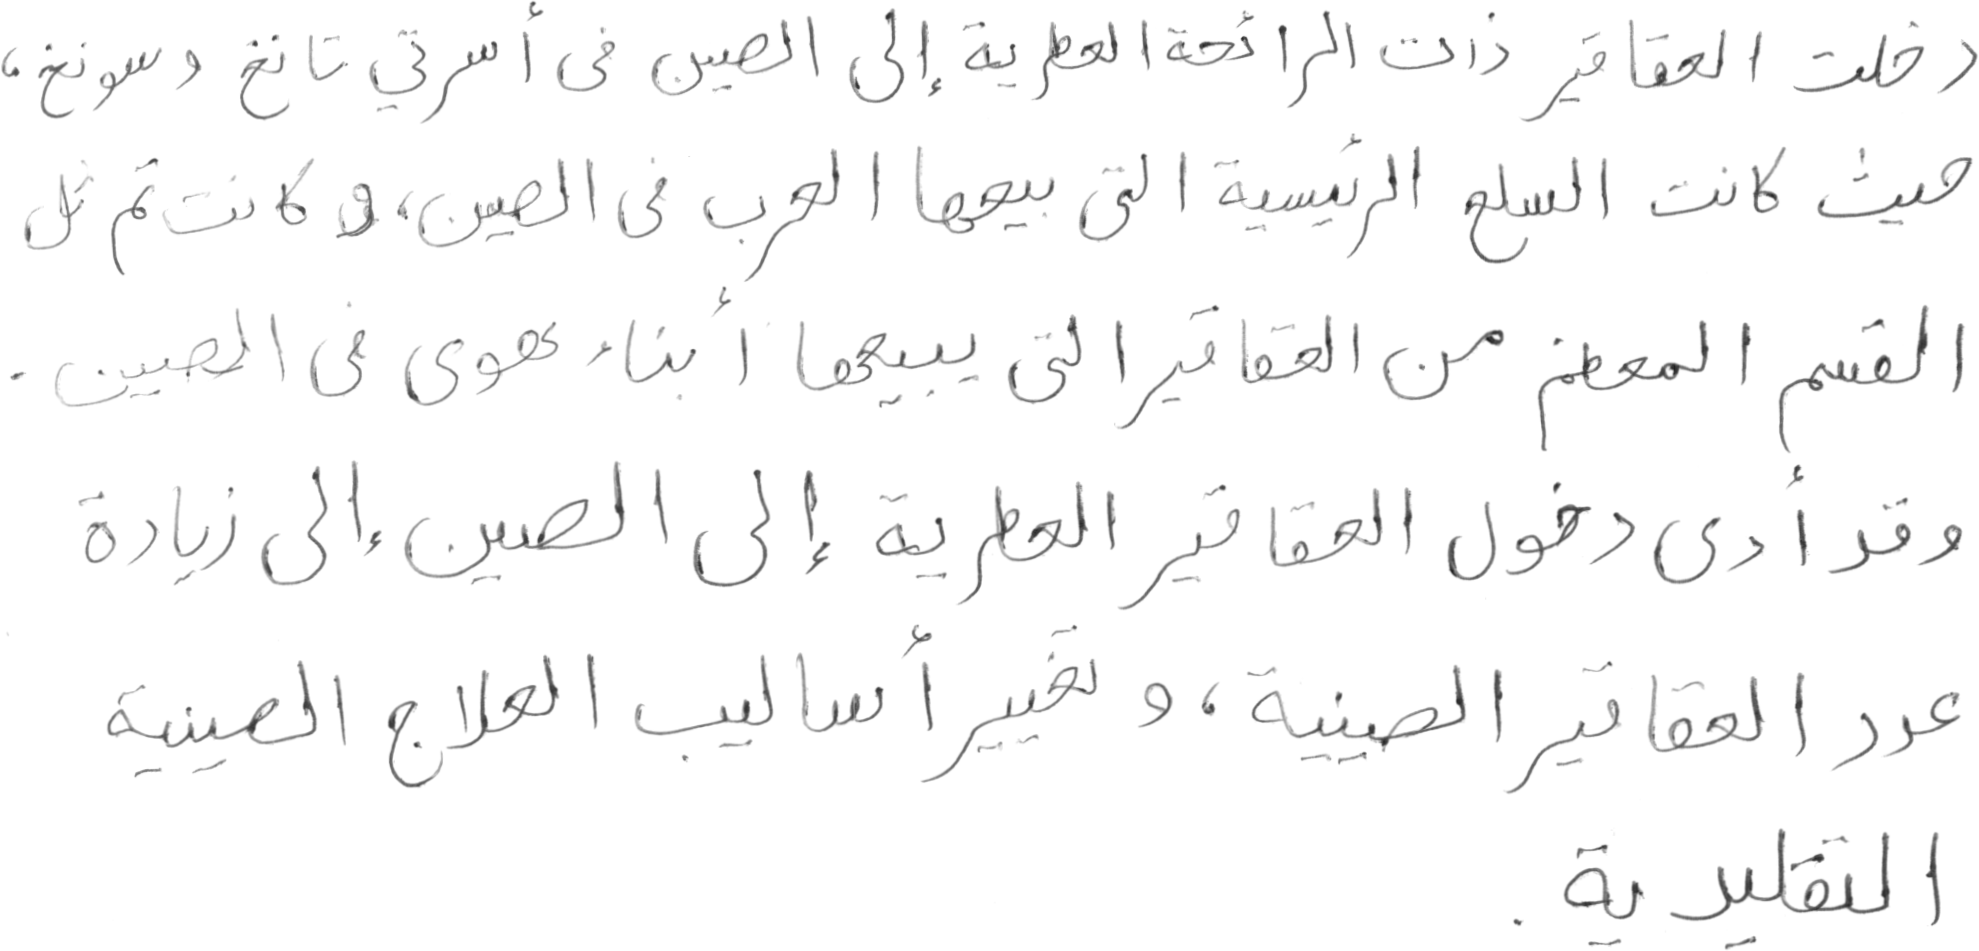 دخلت العقاقير ذات الرائحة العطرية إلى الصين فى أسرتي تانغ وسونغ،
حيث كانت السلع الرئيسية التى يبيعها العرب فى الصين، وكانت تمثل
القسم المعظم من العقاقير التى يبيعها أبناء هوى فى الصين.
وقد أدى دخول العقاقير العطرية إلى الصين إلى زيادة
عدد العقاقير الصينية، وتغيير أساليب العلاج الصينية
التقليدية.